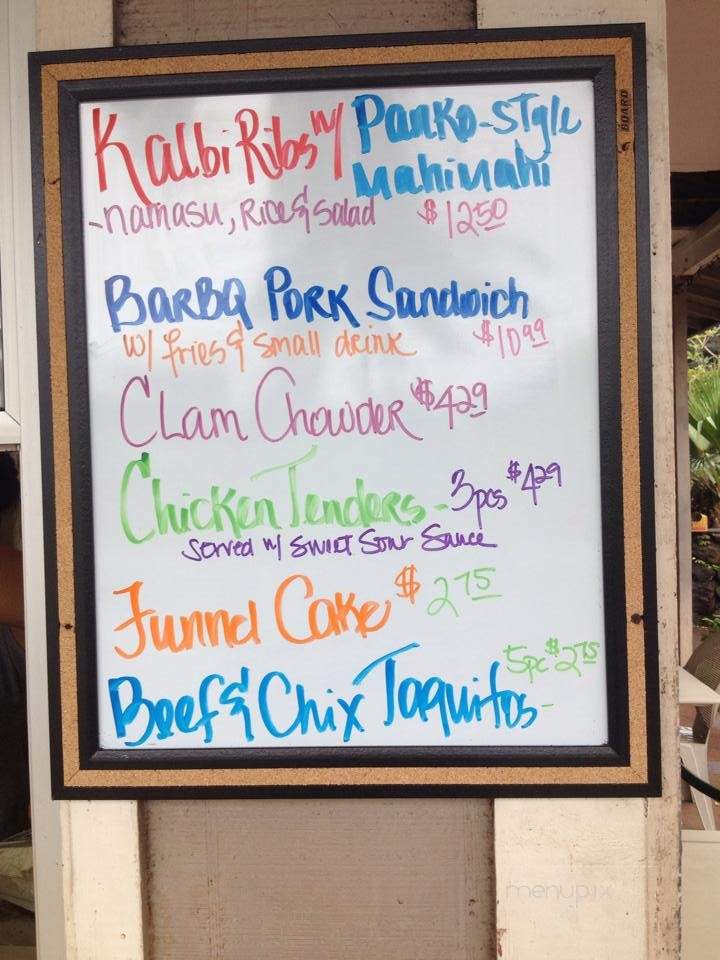 Kalbi Ribs w/ Panko-Style Mahimahi
-namasu, Rice & Salad $12.50
BarBQ Pork Sandwich
w/ fries & small drink $10.99
Clam Chowder $4.29
Chicken Tenders - 3pcs $4.29
Served w/ Sweet Sour Sauce
Funnel Cake $2.75
Beef & Chix Taquitos - 5pc $2.75
BOARD
menupix